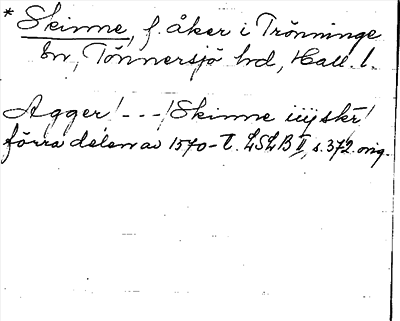 * Skinne, f. åker i Trönninge
sn, Tönnersjö hd, Hall. l.
Agger/ - - -/ Skinne iiij skr/
förra delen av 1570-t. LSLB II, s. 372. orig.